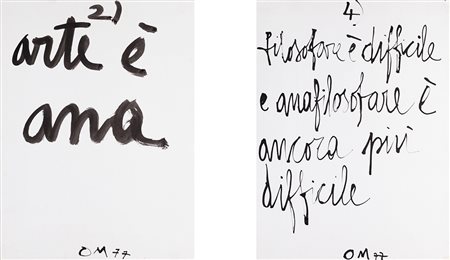 2)
arte è
ana
OM 77
4)
filosofare è difficile
e anafilosofare è
ancora più
difficile
OM 77